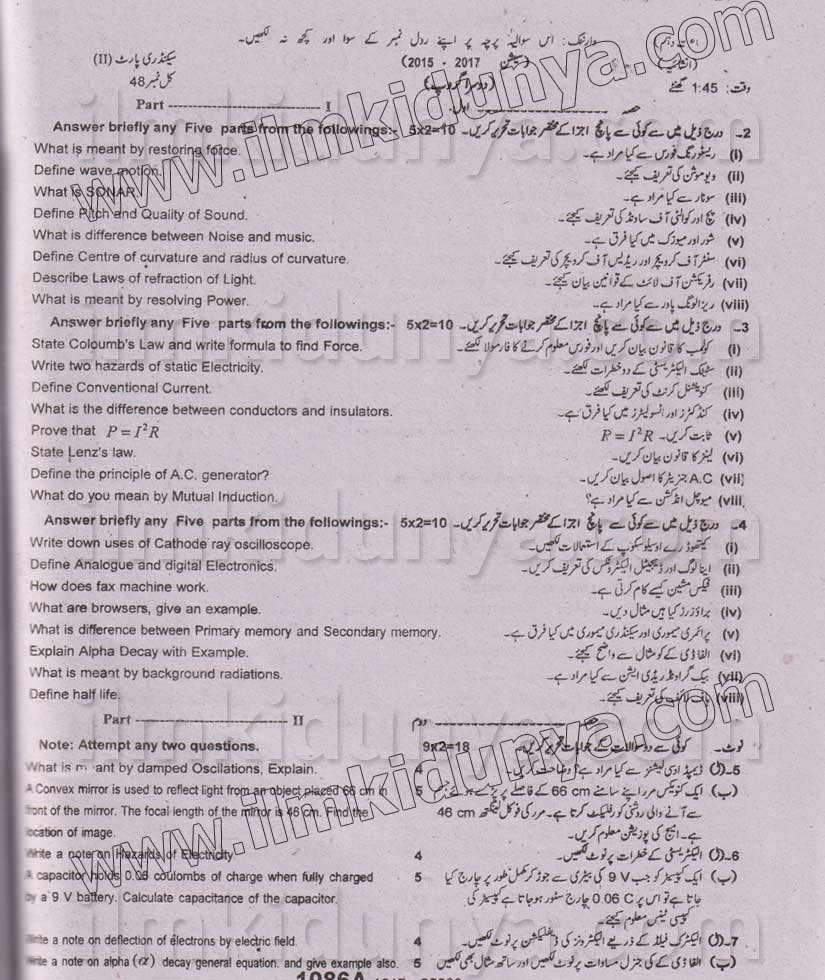 وارننگ: اس سوالیہ پرچہ پر اپنے رول نمبر کے سوا اور کچھ نہ لکھیں۔
سیکنڈری پارٹ (II) (سیشن 2017 - 2015)
کل نمبر 48 (دوسرا گروپ) وقت: 1:45 گھنٹے
Part ------------------------- I حصہ ------------------------- اول
Answer briefly any Five parts from the followings:- 5x2=10 2۔ درج ذیل میں سے کوئی سے پانچ اجزا کے مختصر جوابات تحریر کریں۔
What is meant by restoring force. (i) ریسٹورنگ فورس سے کیا مراد ہے۔
Define wave motion. (ii) ویو موشن کی تعریف کیجئے۔
What is SONAR. (iii) سونار سے کیا مراد ہے۔
Define Pitch and Quality of Sound. (iv) پچ اور کوالٹی آف ساونڈ کی تعریف کیجئے۔
What is difference between Noise and music. (v) شور اور میوزک میں کیا فرق ہے۔
Define Centre of curvature and radius of curvature. (vi) سنٹر آف کرویچر اور ریڈیس آف کرویچر کی تعریف کیجئے۔
Describe Laws of refraction of Light. (vii) رفریکشن آف لائٹ کے قوانین بیان کیجئے۔
What is meant by resolving Power. (viii) ریزالونگ پاور سے کیا مراد ہے۔
Answer briefly any Five parts from the followings:- 5x2=10 3۔ درج ذیل میں سے کوئی سے پانچ اجزا کے مختصر جوابات تحریر کریں۔
State Coloumb's Law and write formula to find Force. (i) کولمب کا قانون بیان کریں اور فورس معلوم کرنے کا فارمولا لکھئے۔
Write two hazards of static Electricity. (ii) سٹیٹک الیکٹریسٹی کے دو خطرات لکھئے۔
Define Conventional Current. (iii) کنونشنل کرنٹ کی تعریف لکھئے۔
What is the difference between conductors and insulators. (iv) کنڈکٹرز اور انسولیٹرز میں کیا فرق ہے۔
Prove that P = I²R (v) ثابت کریں۔ P = I²R
State Lenz's law. (vi) لینز کا قانون بیان کریں۔
Define the principle of A.C. generator? (vii) A.C جنریٹر کا اصول بیان کریں۔
What do you mean by Mutual Induction. (viii) میوچل انڈکشن سے کیا مراد ہے؟
Answer briefly any Five parts from the followings:- 5x2=10 4۔ درج ذیل میں سے کوئی سے پانچ اجزا کے مختصر جوابات تحریر کریں۔
Write down uses of Cathode ray oscilloscope. (i) کیتھوڈ رے اوسیلوسکوپ کے استعمالات لکھیں۔
Define Analogue and digital Electronics. (ii) اینالوگ اور ڈیجیٹل الیکٹرونکس کی تعریف کریں۔
How does fax machine work. (iii) فیکس مشین کیسے کام کرتی ہے۔
What are browsers, give an example. (iv) براؤزرز کیا ہیں مثال دیں۔
What is difference between Primary memory and Secondary memory. (v) پرائمری میموری اور سیکنڈری میموری میں کیا فرق ہے۔
Explain Alpha Decay with Example. (vi) الفا ڈی کے کو مثال سے واضح کیجئے۔
What is meant by background radiations. (vii) بیک گراونڈ ریڈی ایشن سے کیا مراد ہے۔
Define half life. (viii) ہاف لائف کی تعریف کیجئے۔
Part ------------------------- II حصہ ------------------------- دوم
Note: Attempt any two questions. 9x2=18 نوٹ۔ کوئی سے دو سوالات کے جوابات تحریر کریں۔
What is meant by damped Oscilations, Explain. 4 5۔(ا) ڈیمپڈ اوسی لیشنز سے کیا مراد ہے؟ وضاحت کریں۔
A Convex mirror is used to reflect light from an object placed 66 cm in 5 (ب) ایک کنویکس مرر اپنے سامنے 66 cm کے فاصلے پر پڑے ہوئے جسم
front of the mirror. The focal length of the mirror is 46 cm. Find the سے آنے والی روشنی کو رفلیکٹ کرتا ہے۔ مرر کی فوکل لینگتھ 46 cm
location of image. ہے۔ امیج کی پوزیشن معلوم کریں۔
Write a note on Hazards of Electricity 4 6۔(ا) الیکٹریسٹی کے خطرات پر نوٹ لکھیں۔
A capacitor holds 0.06 coulombs of charge when fully charged 5 (ب) ایک کپیسٹر کو جب 9 V کی بیٹری سے جوڑ کر مکمل طور پر چارج کیا
by a 9 V battery. Calculate capacitance of the capacitor. جاتا ہے تو اس پر 0.06 C چارج سٹور ہو جاتا ہے کپیسٹر کی
کپیسی ٹینس معلوم کیجئے۔
Write a note on deflection of electrons by electric field. 4 7۔(ا) الیکٹرک فیلڈ کے ذریعے الیکٹرونز کی ڈیفلیکشن پر نوٹ لکھیں۔
Write a note on alpha (α) decay general equation. and give example also. 5 (ب) الفا ڈی کے کی جنرل مساوات پر نوٹ لکھیں اور ساتھ مثال بھی لکھیں
1086A
www.ilmkidunya.com
www.ilmkidunya.com
ilmkidunya.com
ilmkidunya.com
ilmkidunya.com
ilmkidunya.com